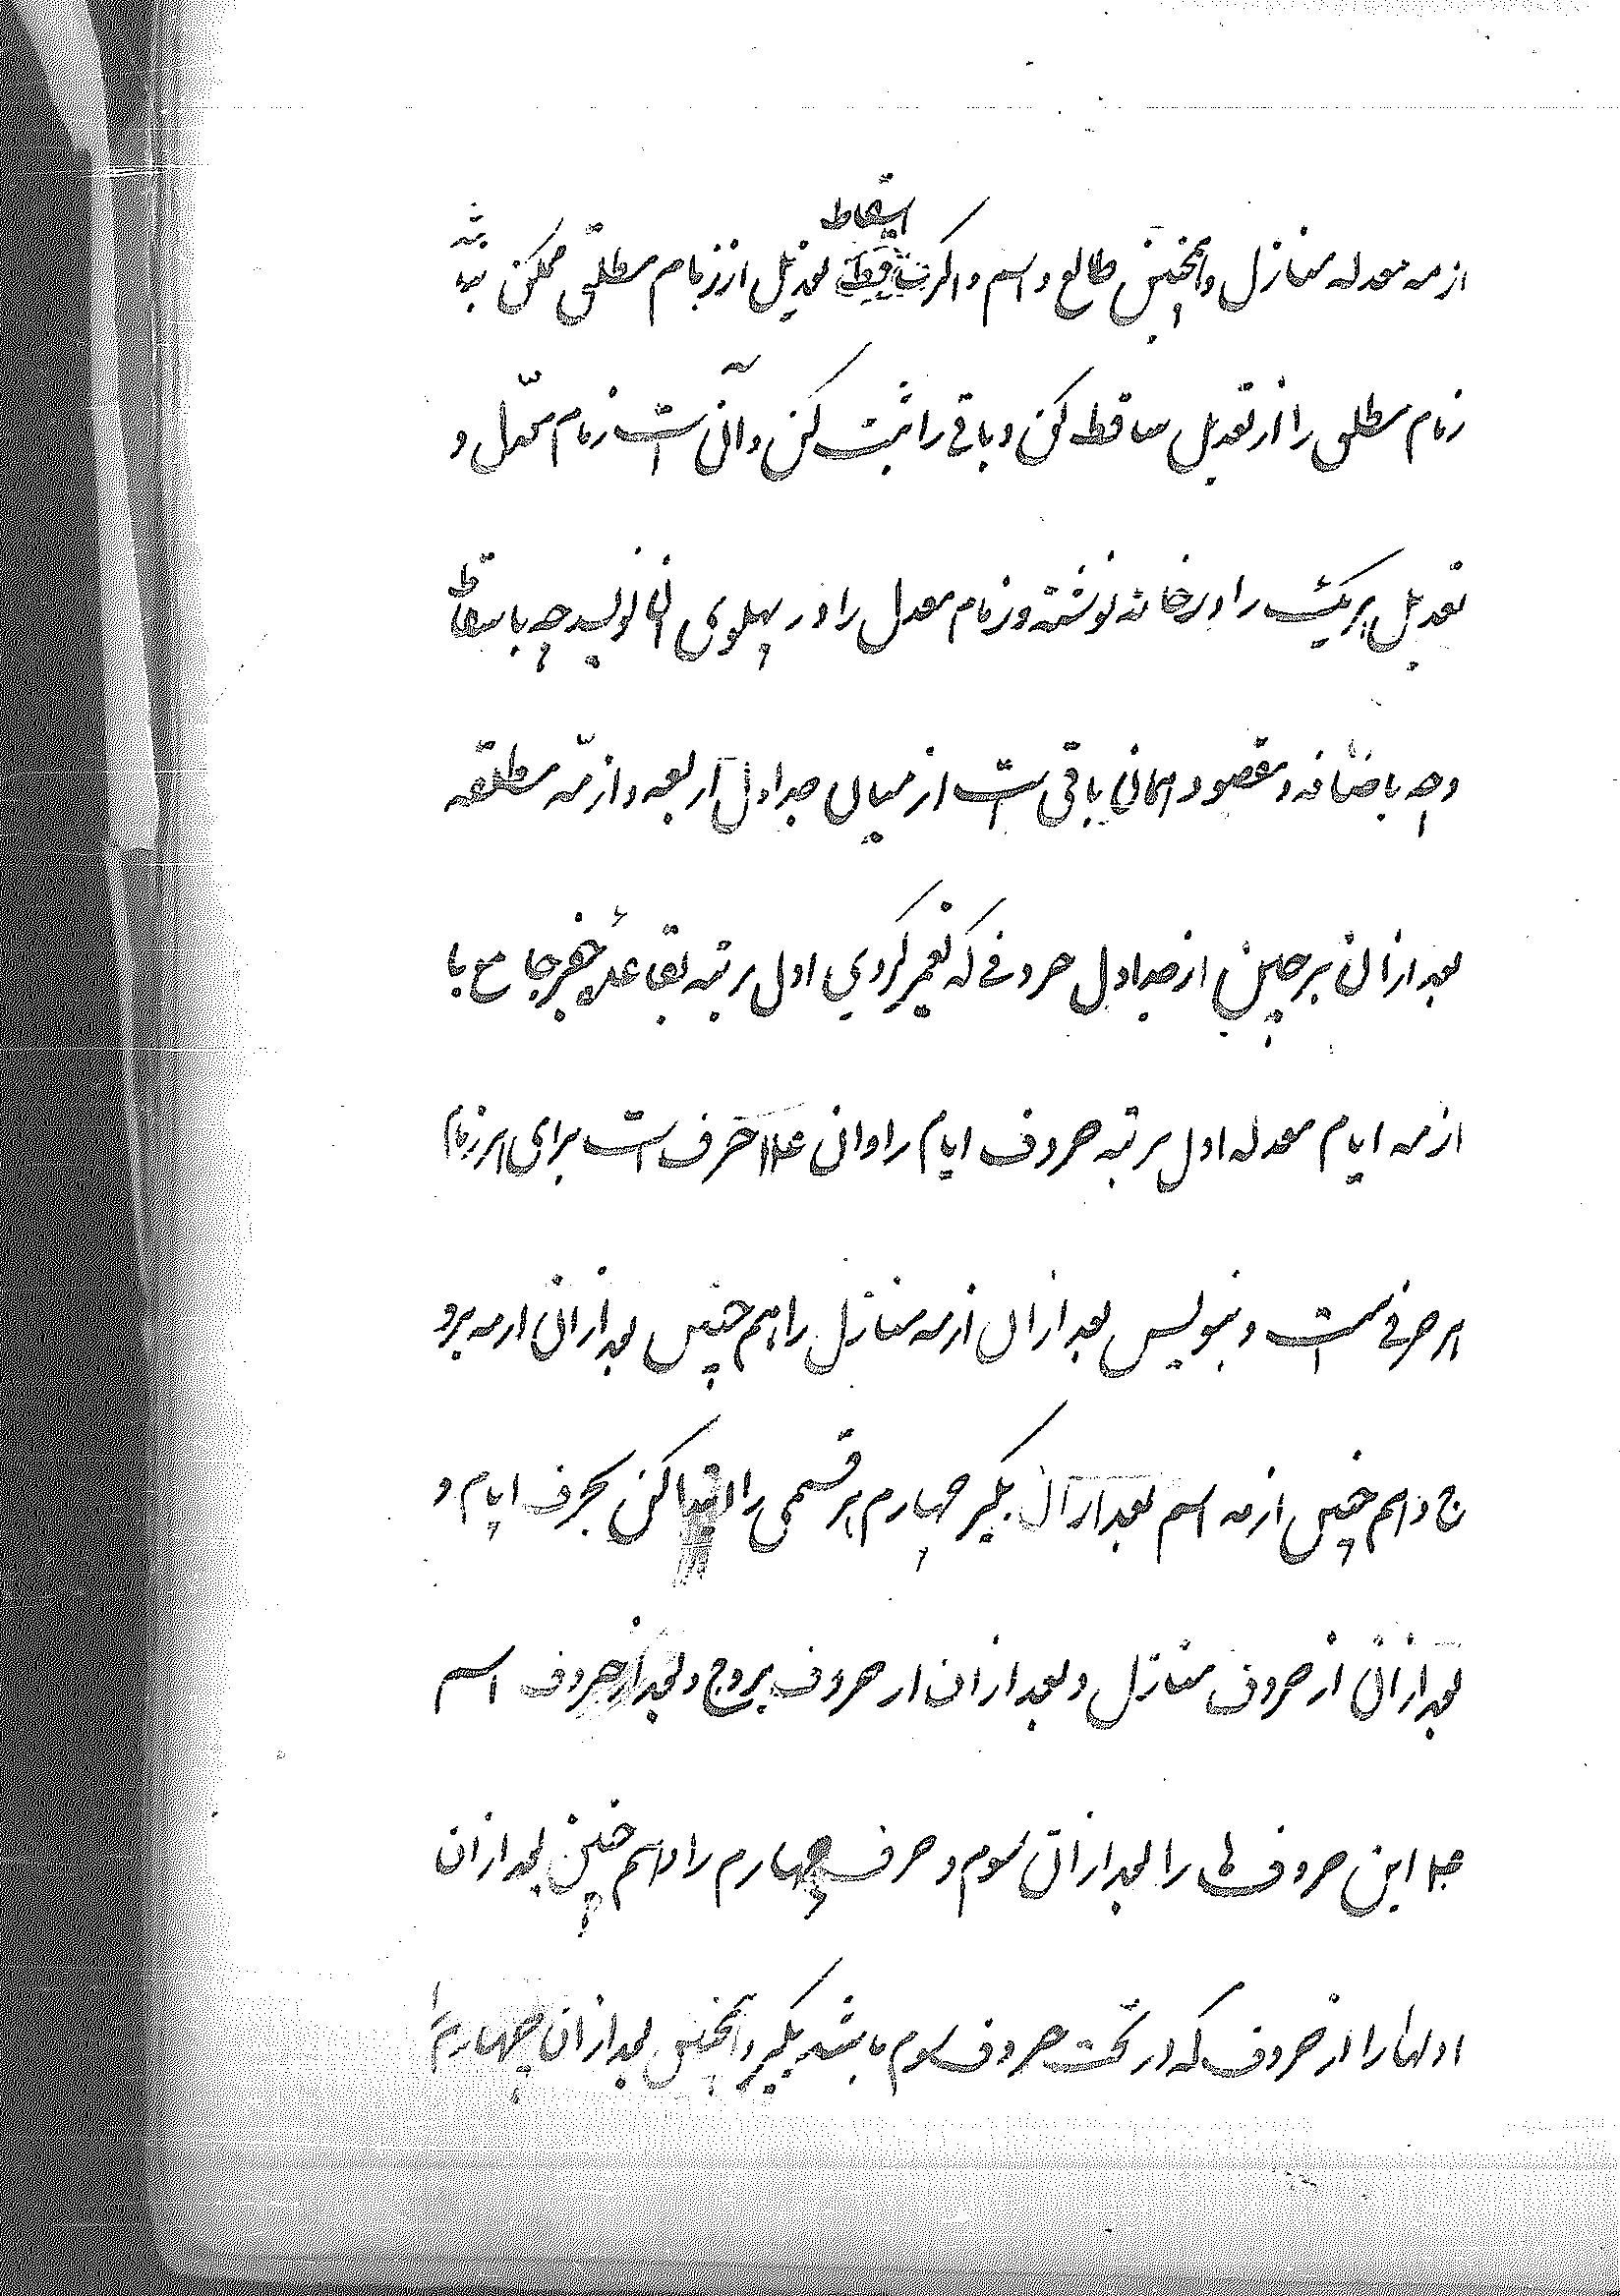 ازمه معدله منازل وانچنین طالع و اسم و اگر اسقاط تعدیل از زمام مطلق ممکن نباشد
زمام مطلق را از تعدیل ساقط کن و باقی را ثبت کن و آنست زمام معدل و
تعدیل هریک را در خانه نوشته و زمام معدل را در پهلوی آن نویسد چه باسقاط
و چه باضافه و مقصود همان باقی است از میان جداول اربعه و ازمّه مطلقه
بعد ازان برچین از جداول حروفی که تعمیر کردی اول رتبه بقاعدهٔ جفر جامع با
ازمه ایام معدله اول مرتبه حروف ایام را وانی حرف است برای هر زمام
هر حرفیست و بنویس بعد ازان ازمه منازل را هم چنین بعد ازان ازمه برو
ج و هم چنین ازمه اسم بعد ازان بگیر چهارم هر قسمی را ابتدا کن بحرف ایام و
بعد ازان از حروف منازل و بعد ازان از حروف بروج و بعد از حروف اسم
این حروفها را بعد ازان سوم و حرف چهارم را و هم چنین بعد ازان
اولها را از حروف که در تحت حروف سوم باشد بگیر وانچنین بعد ازان چهارم را